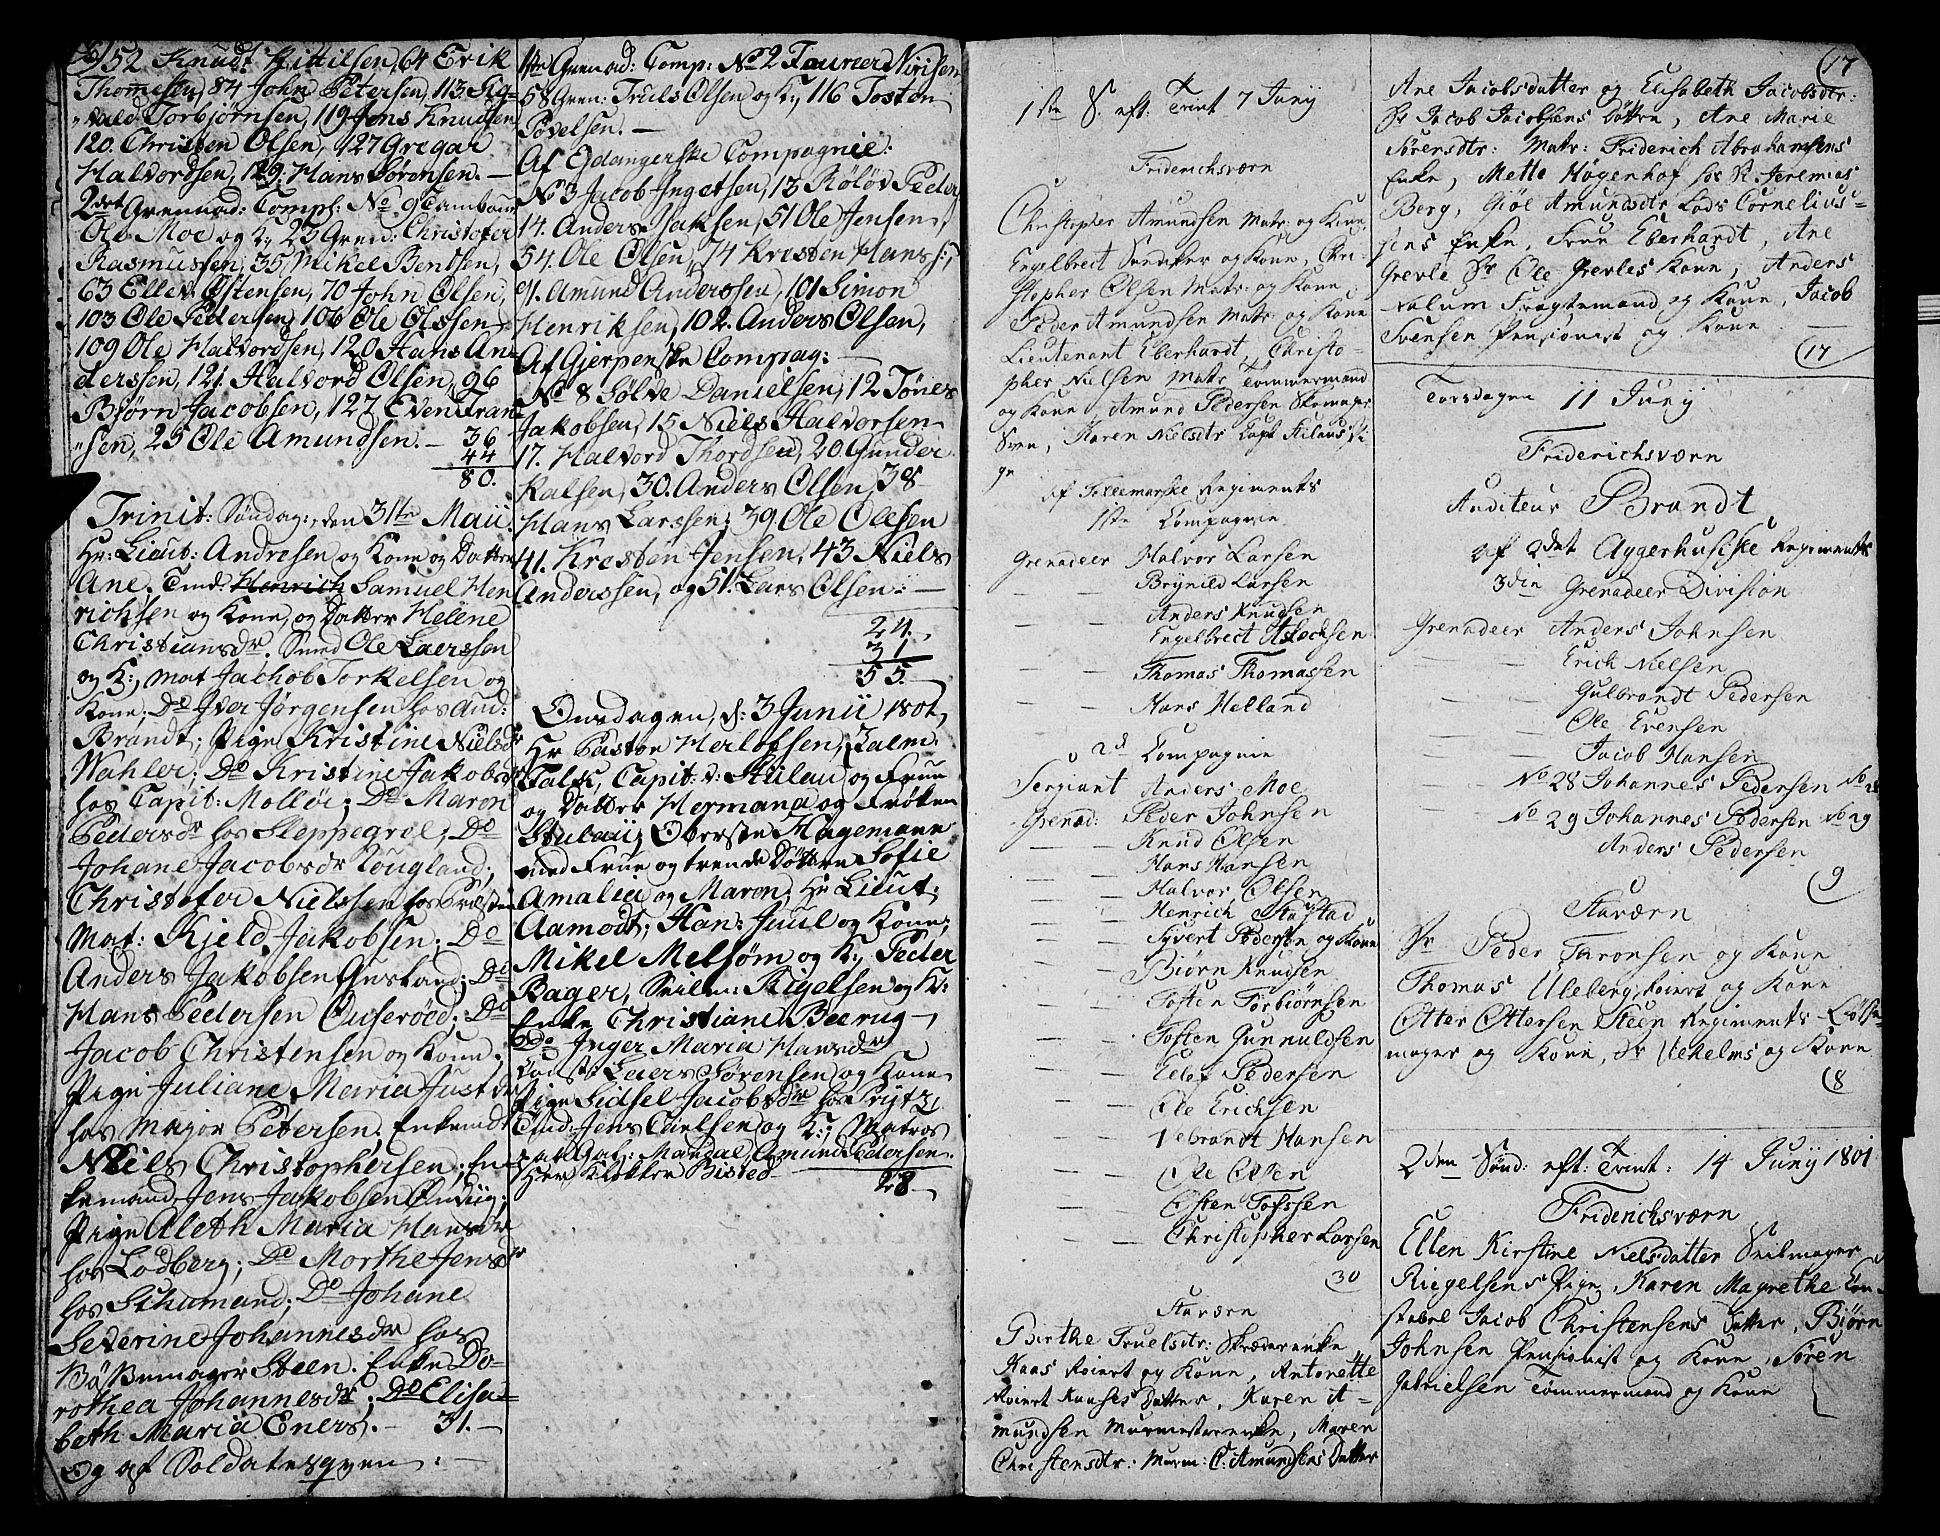 52 Knudt Kittilsen, 64 Erik
Thomesen, 84 John Petersen, 113 Sig-
vald Torbjørnsen, 119 Jens Knudsen
120. Christen Olsen, 127 Gregar
Halvordsen, 129. Hans Sørensen. —
2det Grenad: Comp: No 9 Tambour
Ole Moe og K, 23 Gren: Christofer
Rasmussen, 35 Mikel Bentsen,
63 Ellev Østensen, 70 John Olsen,
103 Ole Pedersen, 106 Ole Olssen
109 Ole Halvordsen, 120 Hans An-
derssen, 121. Halvord Olsen, 96
Biørn Jacobsen, 127 Even Fran-
sen, 25 Ole Amundsen. — 36
44
80.
Trinit: Søndag, den 31te Maii
Hr: Lieut: Andresen og Kone og Datter
Ane. Tmd: Henrich Samuel Hen
richsen og Kone, og Datter Helene
Christiansdr. Smed Ole Laerssen
og K:, mat Jachob Torkelsen og
Kone; Do Iver Jørgensen hos Aud:
Brandt; Pige Kristine Nielsdr
Wahler; Do Kristine Jakobsdr
hos Capit: Molloe; Do Maren
Pedersdr hos Sleppegrel; Do
Johane Jacobsdr Rougland;
Christofer Nielssen hos Præsten
Mat: Kjeld Jakobsen. Do
Anders Jakobsen Gusland; Do
Hans Pedersen Ouserød; Do
Jacob Christensen og Kone;
Pige Juliane Maria Just dr
hos Major Petersen; Enkemd
Niels Christophersen; En-
kemand Jens Jakobsen
Pige Aleth Maria Hansdr
hos Lodberg; Do Morthe Jensdr
hos Schumand; Do Johane
Severine Johannesdr hos
Bøssemager Steen. Enke Do-
rothea Johannesdr; Do Elisa-
beth Maria Eners. — 31. —
Og af Soldatesqven: —
1te Grenad: Comp: No 2 Fourier Nirisen
58 Gren: Truls Olsen og K, 116 Tosten
Povelsen. —
Af Ejdangerske Compagnie:
No 3 Jacob Ingetsen, 13 Røløv Peder
14. Anders Jaksen, 51 Ole Jensen,
54. Ole Olsen, 74 Kresten Hans:,
91. Amund Anderssen, 101 Simon
Henriksen, 102. Anders Olsen,
Af Gjerpenske Compag:
No 8 Sølve Danielsen, 12 Tønes
Jakobsen, 15 Niels Halvorsen
17. Halvord Thordsen, 20 Gunder
Kalsen, 30. Anders Olsen, 38
Hans Larssen; 39 Ole Ollsen
41. Kresten Jensen, 43 Niels
Anderssen, og 51. Lars Olsen. —
24.
31
55.
Onsdagen, d: 3 Junii 1801,
Hr Pastor Herlofsen,
Falk, Capit: v: Stülau og Frue
og Datter Hermana og Frøken
Stulau; Oberste Hagemann
med Frue og trende Døttre Sofie
Amalia og Maren; Hr Lieut:
Aamodt; Han: Juul og Kone;
Mikel Melsøm og K; Peder
Bager, Seilm: Rigelsen og K:
Enke Christiane Beerug —
Do Inger Maria Hansdr
Lods Laers Sørensen og Kone
Pige Sidsel Jacobsdr hos Prytz;
Tmd: Jens Carlsen og K:; Matros
Mandal, Amund Pedersen.
Herr Klokker Bisted 28 —
17
1ste S. eft: Trint 7 Junij
Friderichsværn
Christopher Amundsen Matr: og Kone
Engelbrect Snedker og Kone, Chri-
stopher Olsen Matr: og Kone
Peder Amundsen Matr og Kone
Lieutenant Eberhardt, Christo-
pher Nielsen Matr Tømmermand
og Kone, Amund Pedersen Skomager
Svend, Karen Nielsdtr Capt Stilaus Pi
ge
af Tellemarkske Regiments
1ste Compagnie
Grenadeer Halvor Larsen
— — Brynild Larsen
— — Anders Knudsen
Engelbrect Aslechsen
— — Thomas Thomassen
— — Hans Helland
2d Compagnie
Sergiant Anders Moe
Grenad: Peder Johnsen
— — Knud Olsen
— — Hans Hansen
— — Halvor Olsen
— — Henrich Stafstad
— — Syvert Pedersen og Kone
— — Biørn Knudsen
— — Tosten Torbiørnsen
— — Tosten Gunnuldsen
— — Ellef Pedersen
— — Ole Erichsen
— — Hans
— — Ole Olsen
— — Osten Tofssen
— — Christopher Larsen
30
Staværn
Birthe Truelsdtr: Skræderenke
Kaas Reiert og Kone, Antonette
Reiert Kaases Datter, Karen A-
mundsen Murmesterenke, Maren
Christensdtr: Murm: C: Amundsens Datter
Ane Jacobsdatter og Elisabeth Jacobsdtr:
Sr Jacob Jacobsens Døttre, Ane Marie
Sørensdtr: Matr: Friderich Abrahamsens
Enke, Mette Høgenhof hos Sr Jeremias
Berg, Giøe Amundsdtr Lods Cornelius-
sens Enke, Frue Eberhardt, Ane
Grevle Sr Ole Grevles Kone, Anders
Valum Fragtemand og Kone, Jacob
Svensen Pensionist og Kone —
17
Torsdagen 11 Junij
Friderichsværn
Auditeur Brandt
af 2det Aggerhusiske Regiments
3die Grenadeer Division
Grenadeer Anders Johnsen
— — Erich Nielsen
— — Gulbrandt Pedersen
— — Ole Evensen
— — Jacob Hansen
— No 28 Johannes Pedersen No 28
— No 29 Johannes Pedersen No 29
Anders Pedersen
9
Staværn
Sr Peder Thronsen og Kone
Thomas Uleberg, Reiert og Kone
Otter Ottersen Steen Regiments Bøsse-
mager og Kone, Sr Vilhelms og Kone
8
2den Sønd: eft: Trint: 14 Junij 1801
Friderichsværn
Ellen Kirstine Nielsdatter Seilmager
Riegelsens Pige, Karen Magrethe Con-
stabel Jacob Christensens Datter, Biørn
Johnsen Pensionist og Kone, Søren
Gabrielsen Tømmermand og Kone